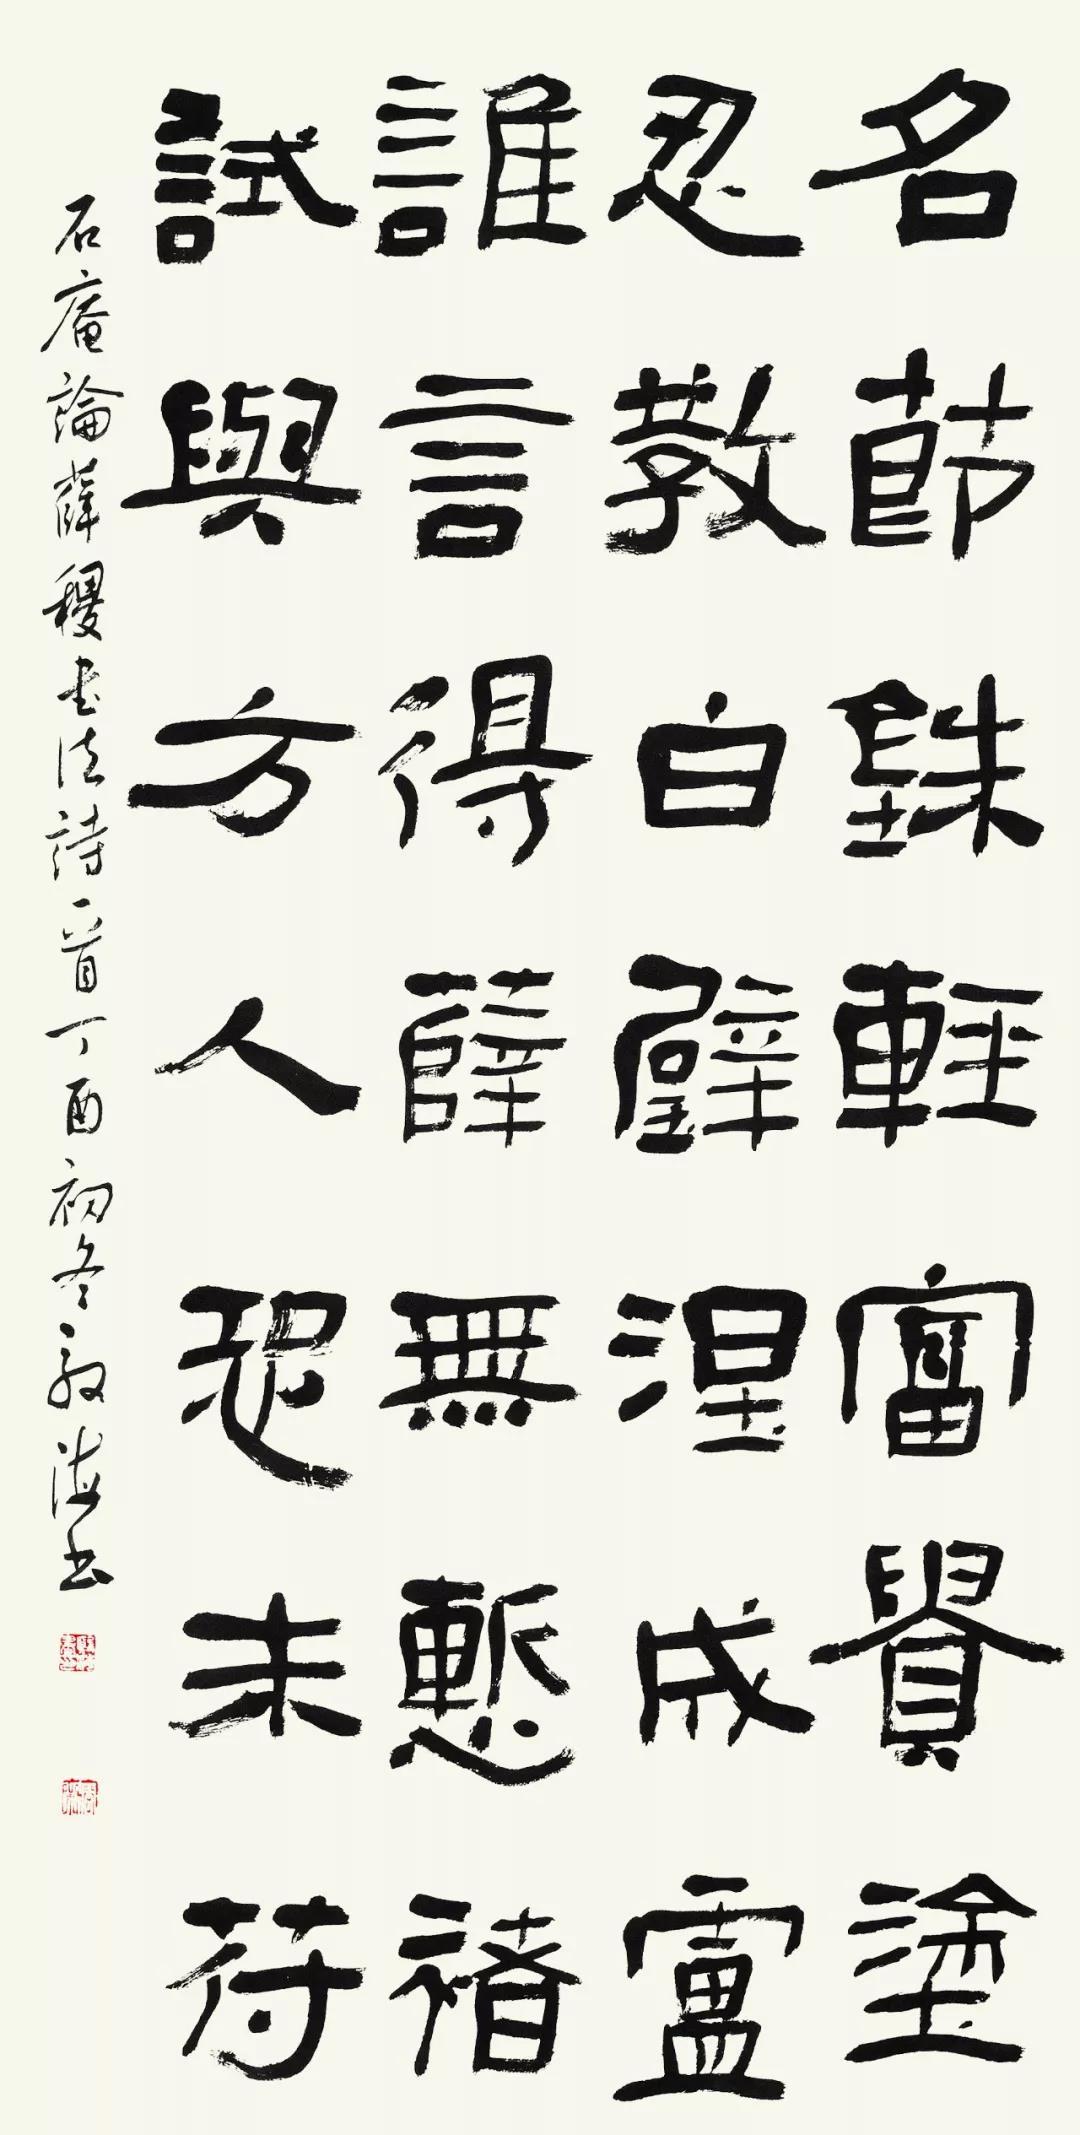 名節銖輕富貴塗
忍教白璧涅成盧
誰言得薛無慙褚
試與方人恐未符
石庵論薛稷書法詩一首丁酉初冬敬海書